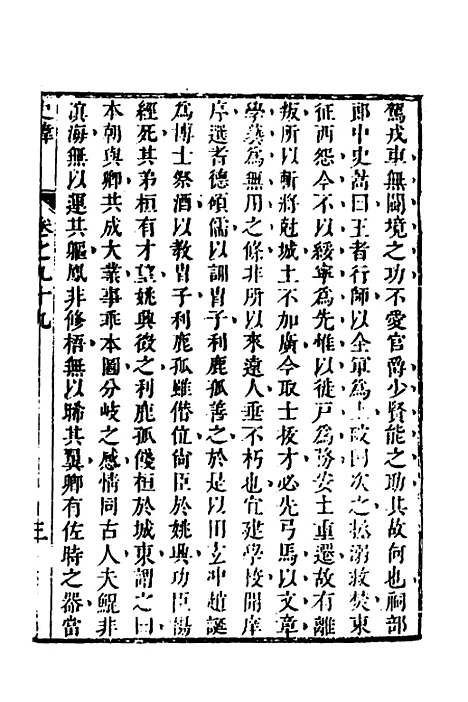 駕戎車無闢境之功不愛官爵少賢能之助其故何也祠部
郎中史暠曰王者行師以全軍為上破國次之拯溺救焚東
征西怨今不以綏寧為先惟以徙戸為務安土重遷故有離
叛所以斬將尅城土不加廣今取士拔才必先弓馬以文章
學藝為無用之條非所以來遠人垂不朽也宜建學校開庠
序選耆德碩儒以訓胄子利鹿孤善之於是以田玄冲趙誕
為博士祭酒以教胄子利鹿孤雖僭位尙臣於姚興功臣楊
經死其弟桓有才望姚興徴之利鹿孤餞桓於城東謂之曰
本朝與卿共成大業事乖本圖分岐之感情同古人夫鯤非
溟海無以運其軀鳳非修梧無以晞其翼卿有佐時之器當
史緯
卷之九十九
三